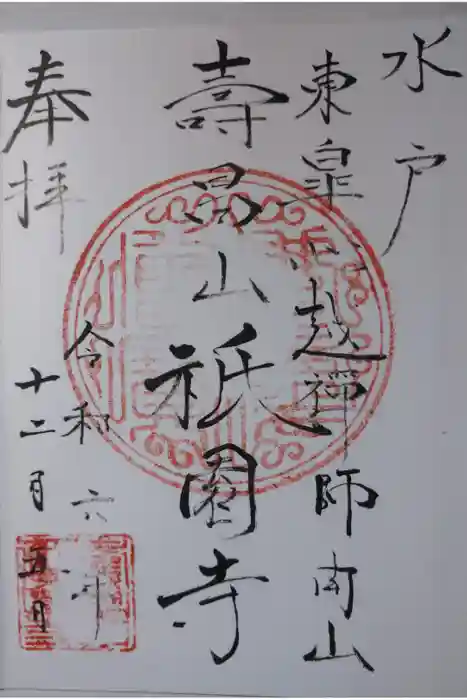 水戸
東皐心越禪師開山
壽昌山祇園寺
奉拝
令和六年
十二月五日